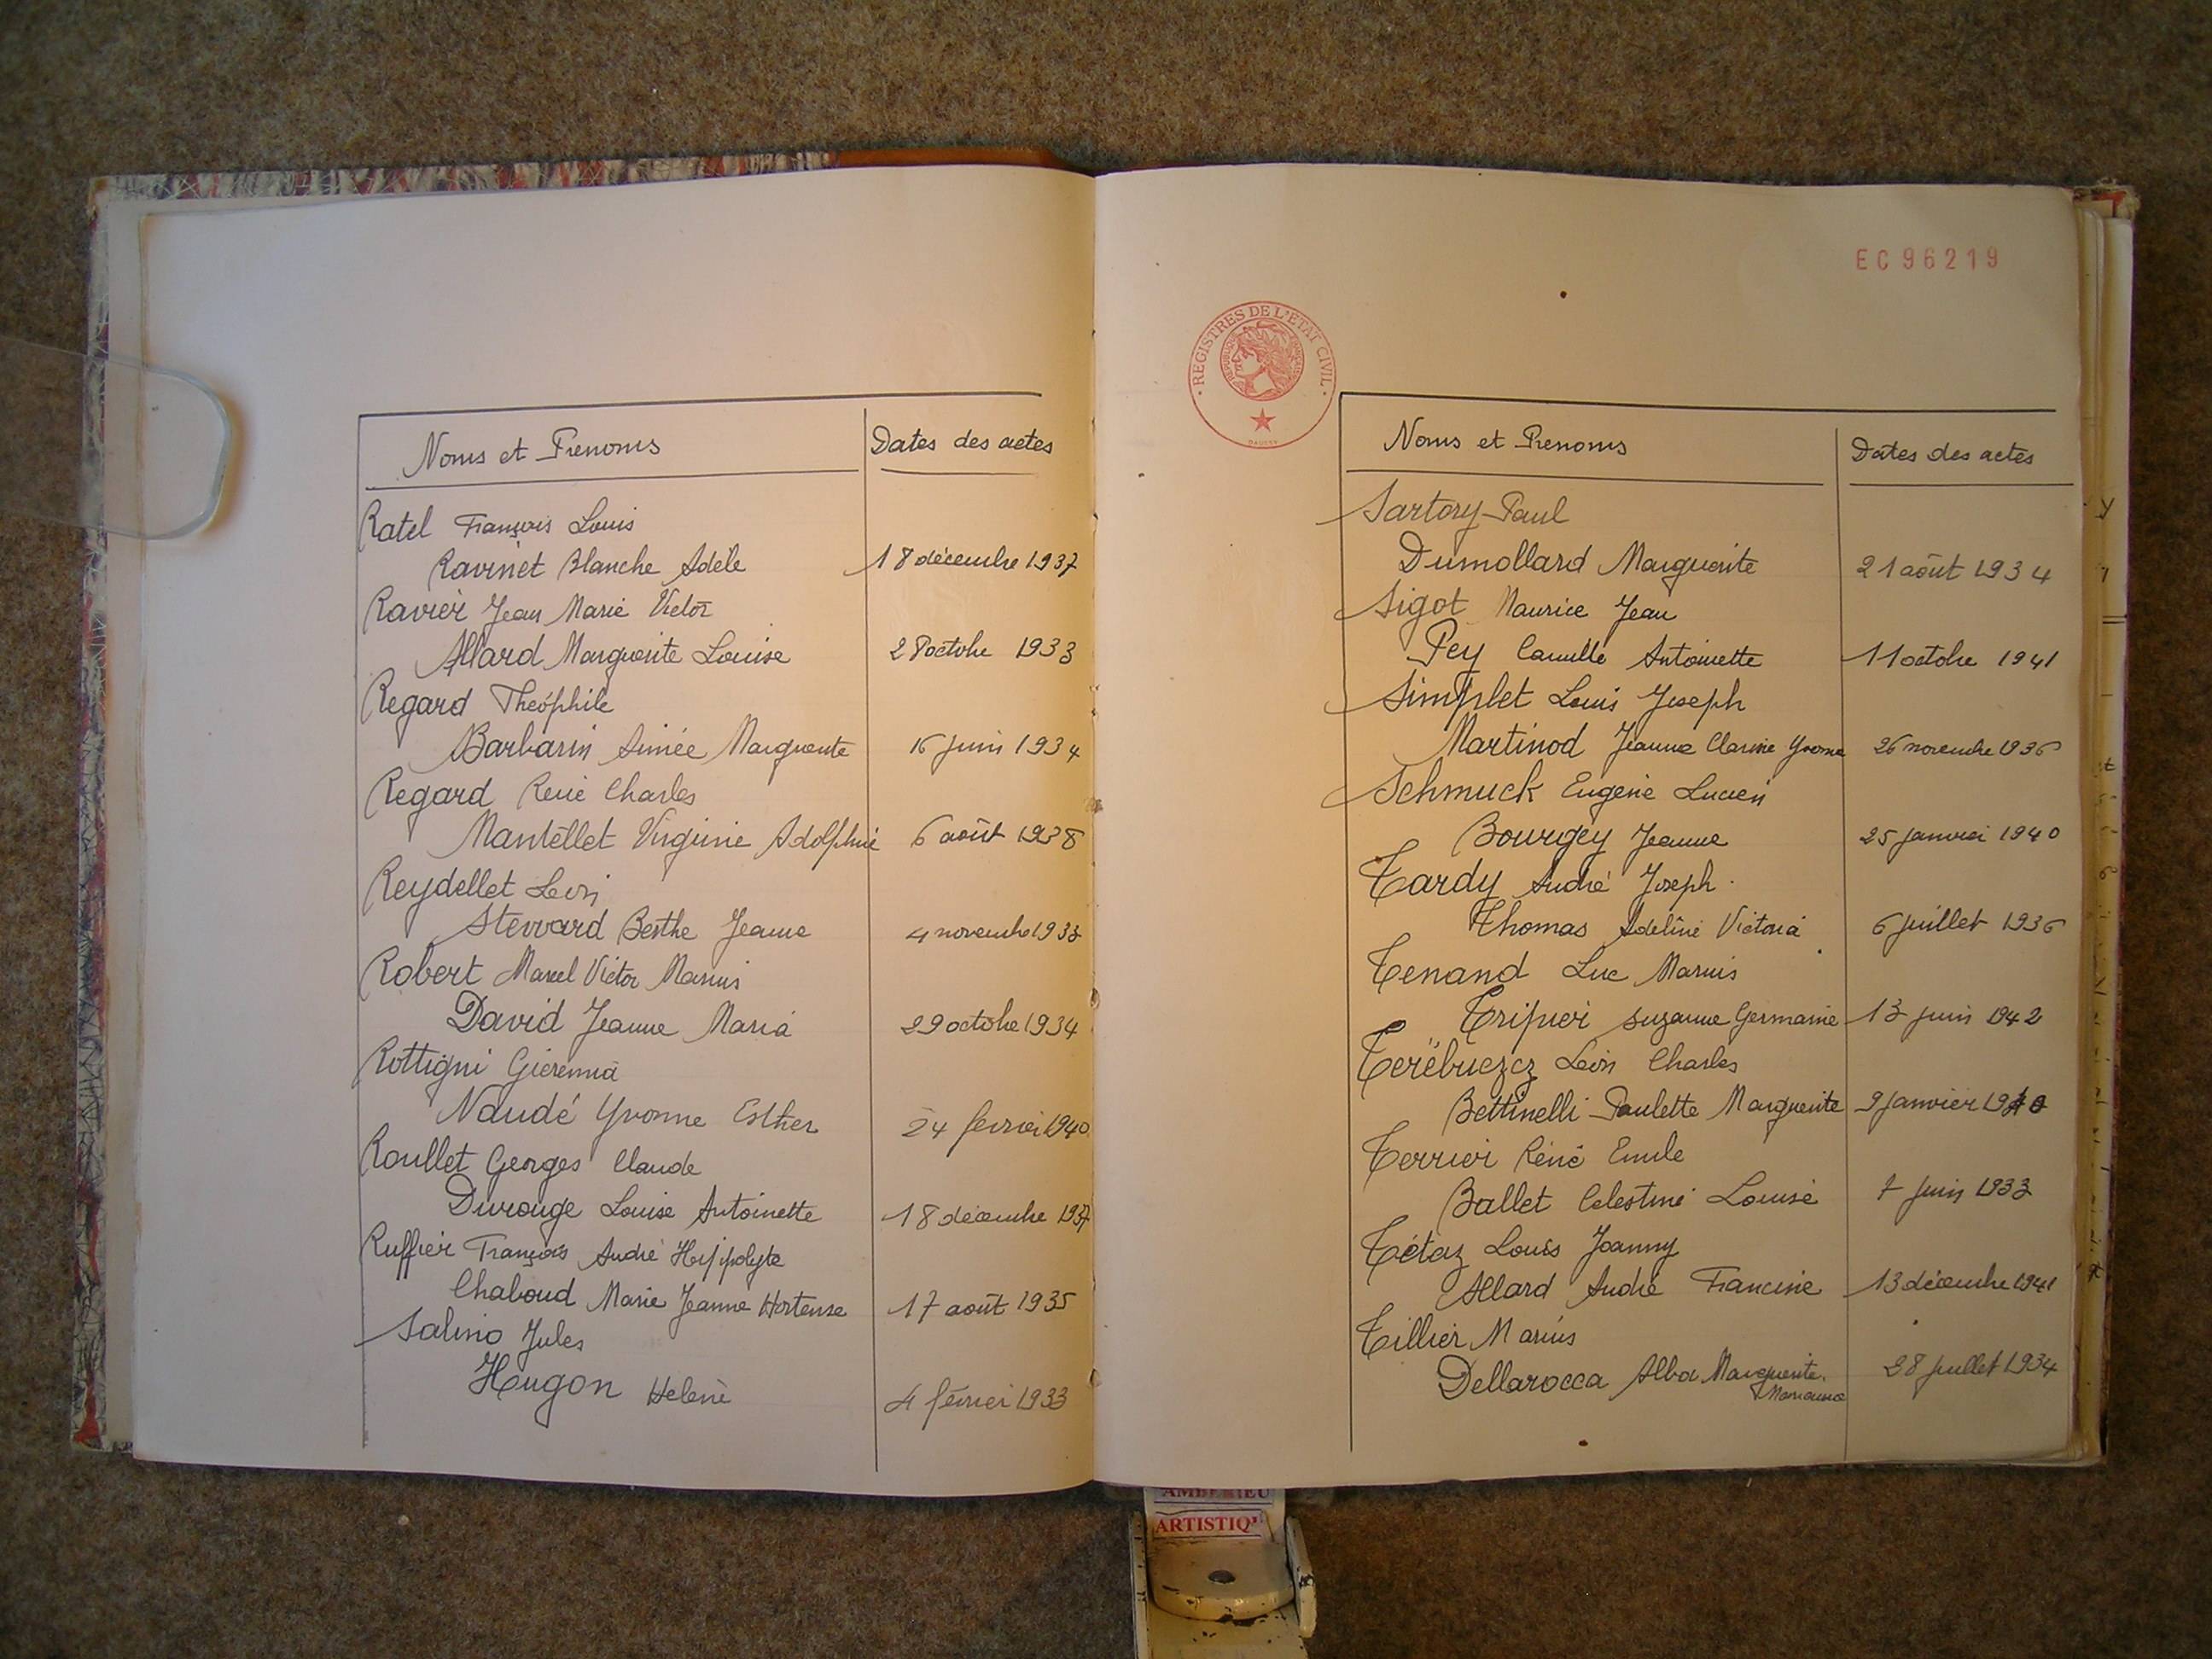 Noms et Prenoms Dates des actes
Ratel François Louis
Ravinet Blanche Adèle 18 décembre 1937
Ravier Jean Marie Victor
Allard Marguerite Louise 28 octobre 1933
Regard Théophile
Barbarin Aimée Marguerite 16 juin 1934
Regard René Charles
Mantellet Virginie Adolphine 6 août 1938
Reydellet Léon
Stewart Berthe Jeanne 4 novembre 1933
Robert Marcel Victor Marius
David Jeanne Maria 29 octobre 1934
Rottigni Gieremia
Naudé Yvonne Esther 24 février 1940
Roullet Georges Claude
Durouge Louise Antoinette 18 décembre 1937
Ruffier François André Hyppolyte
Chaboud Marie Jeanne Hortense 17 août 1935
Salino Jules
Hugon Helene 4 février 1933
EC 96219
REGISTRES DE L'ETAT CIVIL
REPUBLIQUE FRANÇAISE
Noms et Prenoms Dates des actes
Sartory Paul
Dumollard Marguerite 21 août 1934
Sigot Maurice Jean
Pey Camille Antoinette 11 octobre 1941
Simplet Louis Joseph
Martinod Jeanne Clarine Yvonne 26 novembre 1936
Schmuck Eugène Lucien
Bourgey Jeanne 25 janvier 1940
Tardy André Joseph
Thomas Adeline Victoria 6 juillet 1936
Tenand Luc Marius
Tripier Suzanne Germaine 13 juin 1942
Terëbuezcz Léon Charles
Bettinelli Paulette Marguerite 9 janvier 1940
Terrier René Emile
Ballet Celestine Louise juin 1933
Tétaz Louis Joanny
Allard André Francine 13 décembre 1941
Tillier Marius
Dellarocca Alba Marguerite 28 juillet 1934
Marianna
AMBERIEU
ARTISTIQ